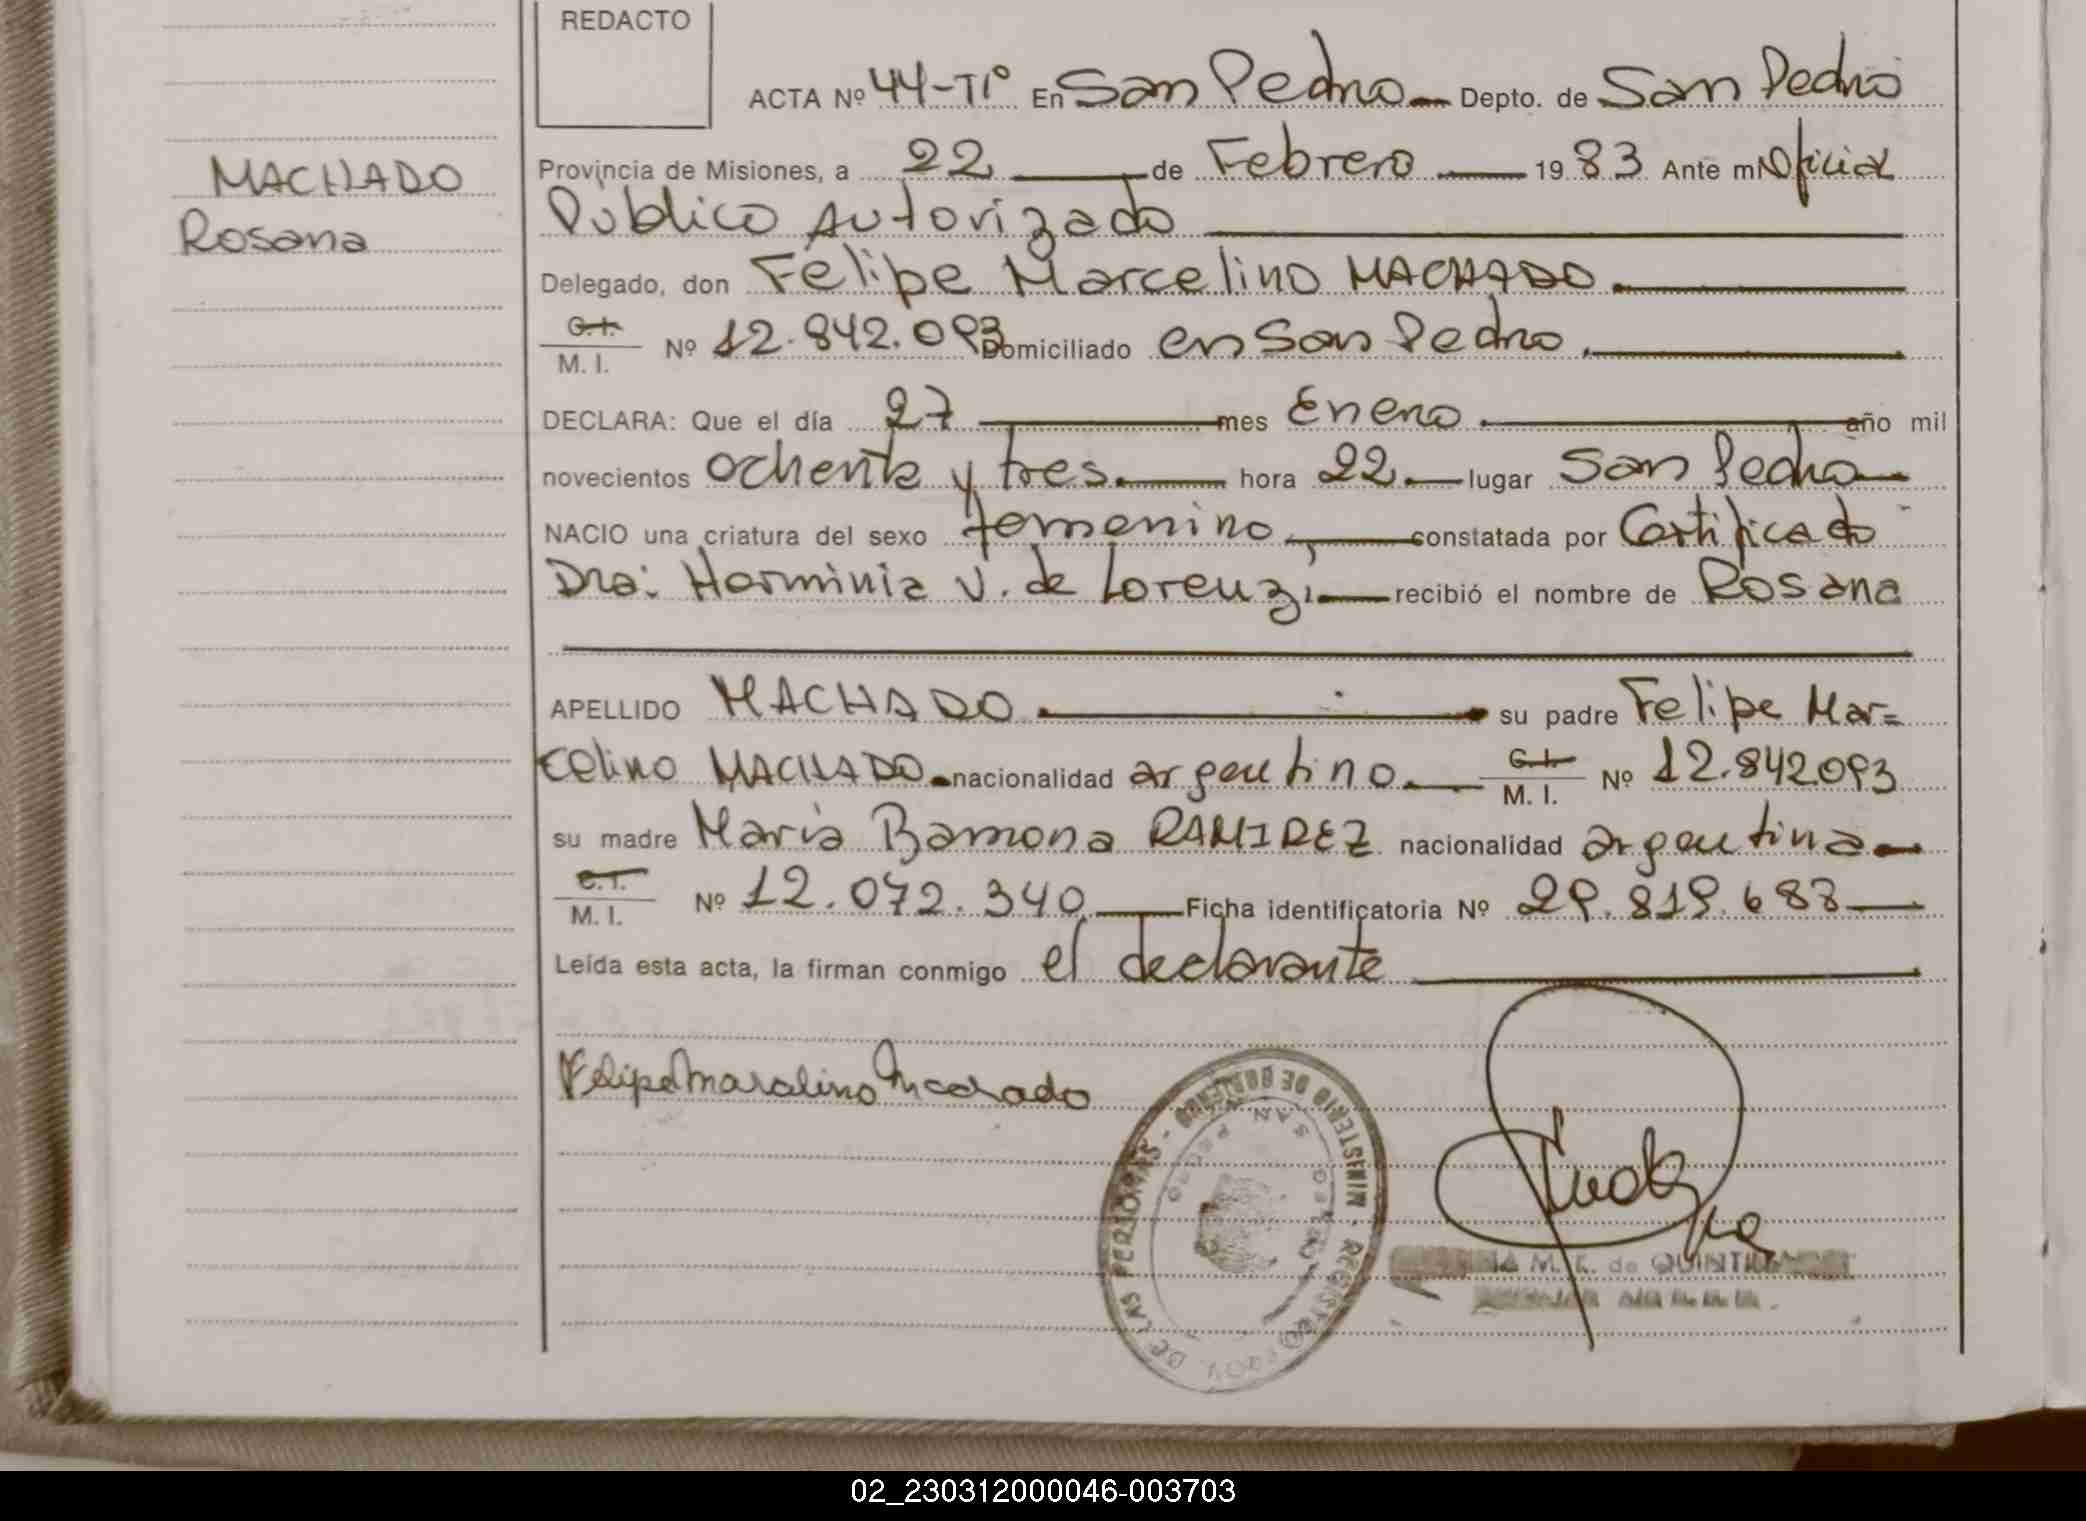 REDACTO
ACTA Nº 44-Tº En San Pedro Depto. de San Pedro
MACHADO
Rosana
Provincia de Misiones, a 22 de Febrero 1983 Ante mi Oficial
Público Autorizado
Delegado, don Felipe Marcelino MACHADO
C.I.
M. I. Nº 12.842.093 Domiciliado en San Pedro.
DECLARA: Que el día 27 mes Enero año mil
novecientos ochenta y tres. hora 22. lugar San Pedro
NACIO una criatura del sexo femenino, constatada por Certificado
Dra: Herminia V. de Lorenzi, recibió el nombre de Rosana
APELLIDO MACHADO su padre Felipe Mar=
celino MACHADO. nacionalidad argentino. C.I.
M. I. Nº 12.842.093
su madre María Ramona RAMIREZ nacionalidad argentina
C.I.
M. I. Nº 12.072.340 Ficha identificatoria Nº 29.819.688
Leída esta acta, la firman conmigo el declarante
Felipe Marcelino Machado
MINISTERIO DE GOBIERNO - REGISTRO PROV. DE LAS PERSONAS -
SAN PEDRO
M. E. de
02_230312000046-003703